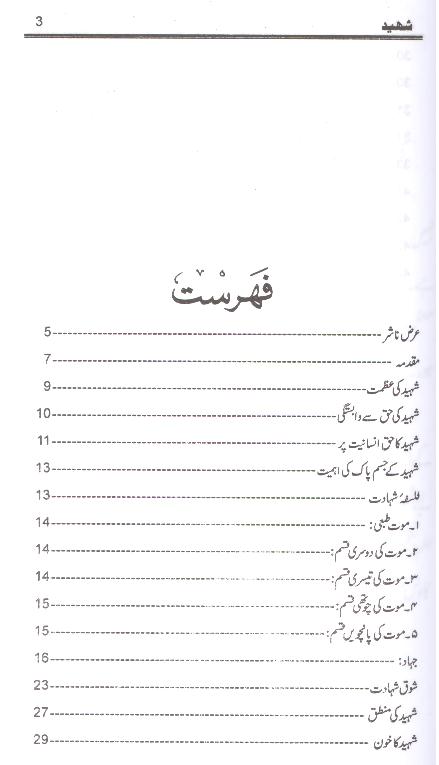 شہید 3
فہرست
عرض ناشر 5
مقدمہ 7
شہید کی عظمت 9
شہید کی حق سے وابستگی 10
شہید کا حق انسانیت پر 11
شہید کے جسم پاک کی اہمیت 13
فلسفۂ شہادت 13
۱۔موت طبعی: 14
۲۔موت کی دوسری قسم: 14
۳۔موت کی تیسری قسم: 14
۴۔موت کی چوتھی قسم: 15
۵۔موت کی پانچویں قسم: 15
جہاد: 16
شوق شہادت 23
شہید کی منطق 27
شہید کا خون 29